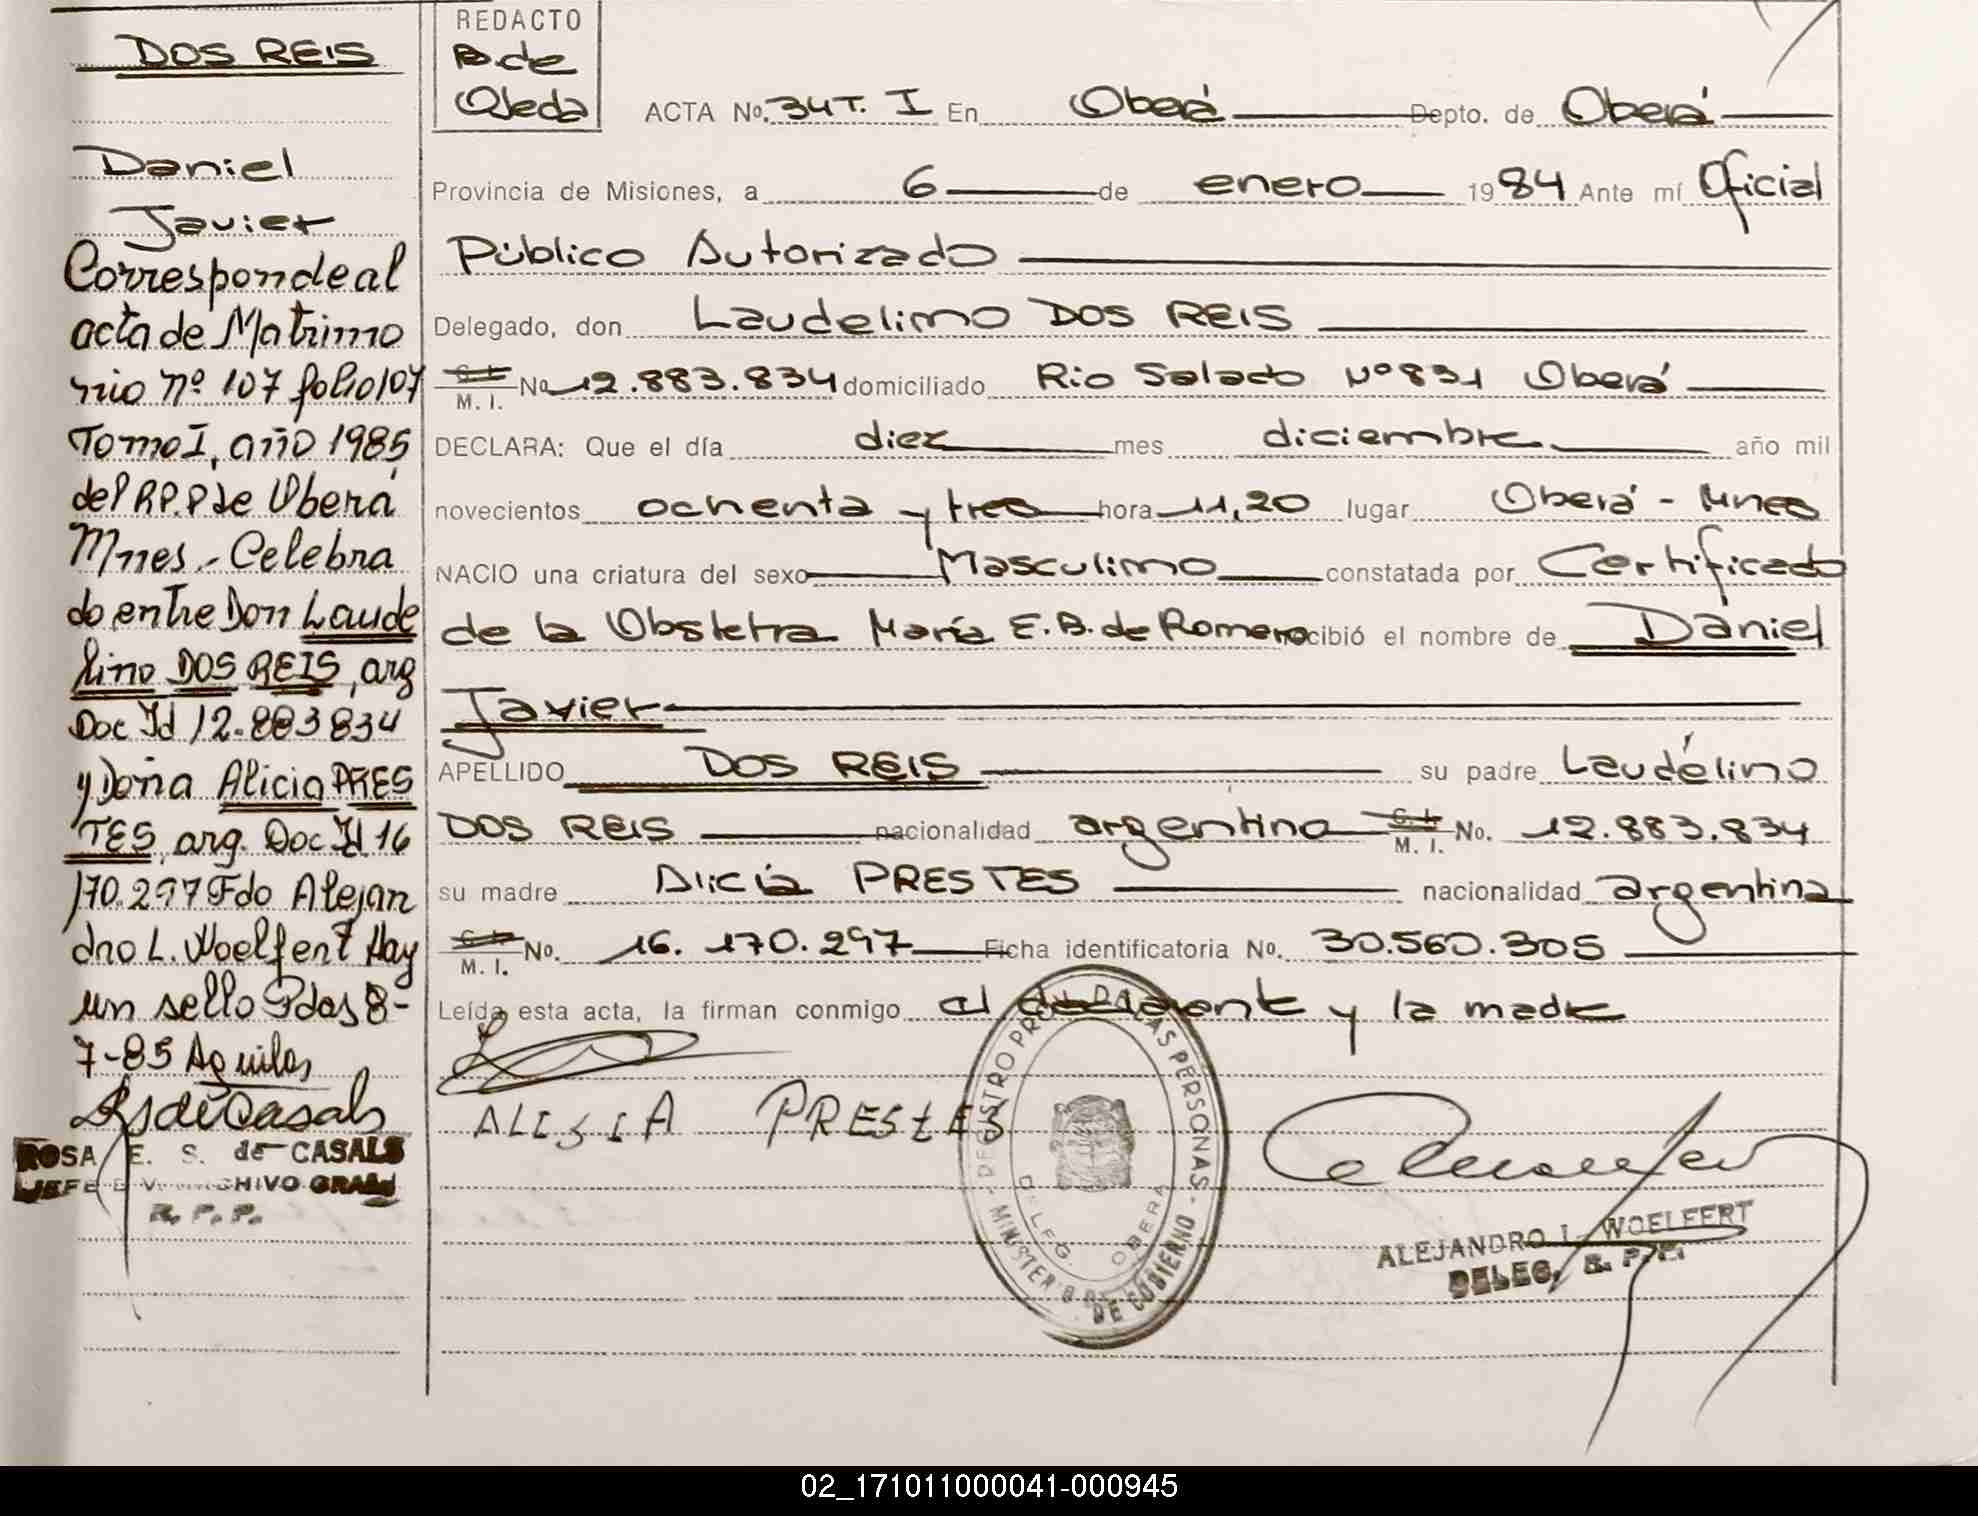 DOS REIS
Daniel
Javier
Corresponde al
acta de Matrimo
nio nº 107 folio 107
Tomo I, año 1985
del R.P.P de Oberá
Mnes.- Celebra
do entre Don Laude
lino DOS REIS, arg
Doc Id 12.883834
y Doña Alicia PRES
TES, arg. Doc Id 16
170.297 Fdo Alejan
dro L. Woelfert Hay
un sello Pdas 8-
7-85 Aguilas
ROSA E. S. de CASALS
JEFE DIV. ARCHIVO GRAL
R. P. P.
REDACTO
B. de
Ojeda
ACTA No. 34 T. I En Oberá Depto. de Oberá
Provincia de Misiones, a 6 de enero 1984 Ante mí Oficial
Público Autorizado
Delegado, don Laudelino DOS REIS
C. I. M. I. No 12.883.834 domiciliado Rio Salado Nº 831 Oberá
DECLARA: Que el día diez mes diciembre año mil
novecientos ochenta y tres hora 11,20 lugar Oberá - Mnes
NACIO una criatura del sexo Masculino constatada por Certificado
de la Obstetra María E. B. de Romero recibió el nombre de Daniel
Javier
APELLIDO DOS REIS su padre Laudelino
DOS REIS nacionalidad argentino C. I. M. I. No. 12.883.834
su madre Alicia PRESTES nacionalidad argentina
C. I. M. I. No. 16.170.297 Ficha identificatoria No. 30.560.305
Leída esta acta, la firman conmigo el declarante y la madre
ALISIA PRESTES
REGISTRO PROV. DE LAS PERSONAS
DELEG. OBERA
MINISTERIO DE GOBIERNO
ALEJANDRO L. WOELFERT
DELEG. R. P. P.
02_171011000041-000945